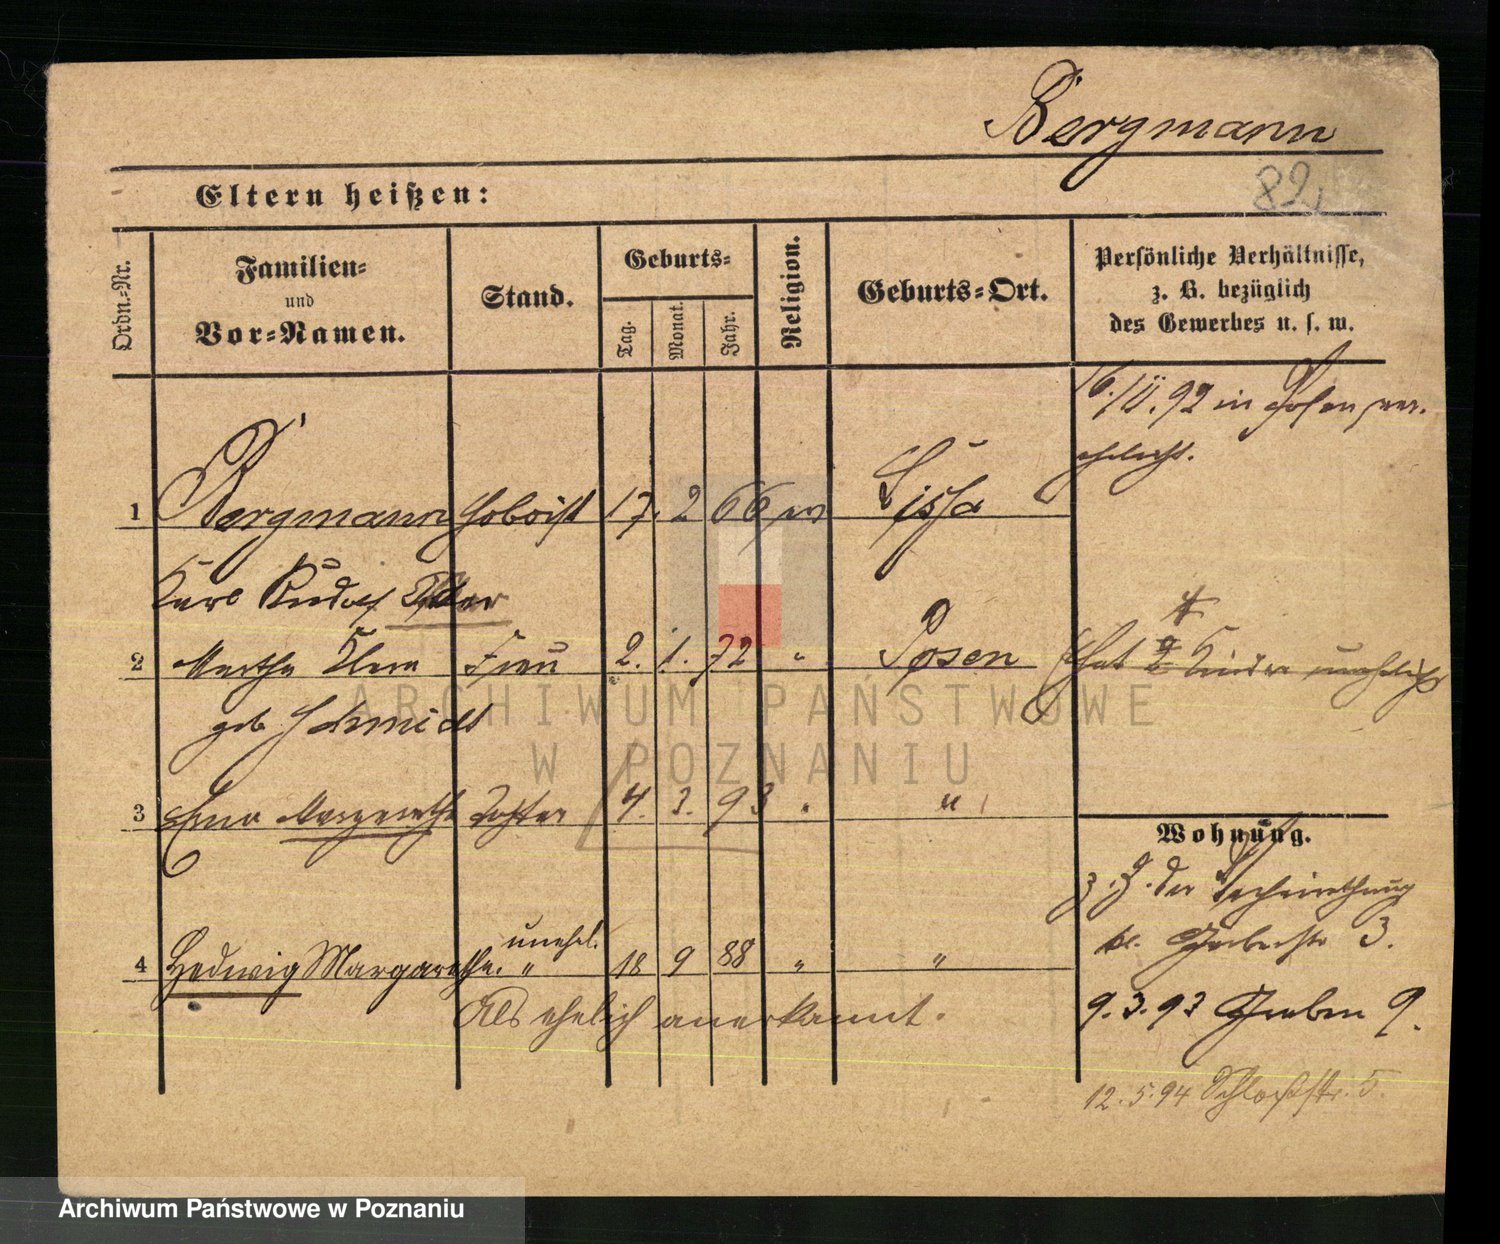 Bergmann
82,
Eltern heißen:
Ordn.-Nr.
Familien-
und
Vor-Namen.
Stand.
Geburts-
Tag.
Monat.
Jahr.
Religion.
Geburts-Ort.
Persönliche Verhältnisse,
z. B. bezüglich
des Gewerbes u. s. w.
92 in Posen ver-
ehelicht.
1 Bergmann Hoboist 17. 2 66 ev Lissa
Karl Rudolf
2 Martha Clara Frau 2. 1. 72 " Posen
hat Kinder unehelich
geb Schmidt
ARCHIWUM PAŃSTWOWE
W POZNANIU
3 Erna Margarethe Tochter 4. 3. 93 " "
Wohnung.
z. Z. der Verheirathung
kl. Gerberstr 3.
4 Hedwig Margarethe. unehel. " 18 9 88 " "
Als ehelich anerkannt.
9.3.93 Graben 9.
12.5.94 Schloßstr. 5.
Archiwum Państwowe w Poznaniu